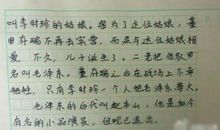 叫李时珍的姑娘。因为了这位姑娘，董
存瑞不再去炸雷，而是与这位姑娘相
爱。不久，儿子诞生了。二老把他取
名叫毛泽东。董存瑞之后在战场上不幸
牺牲，只有李时珍一个人把毛泽东养大。
毛泽东的后代叫赵本山，他是如今
有名的小品演员，但现已退出